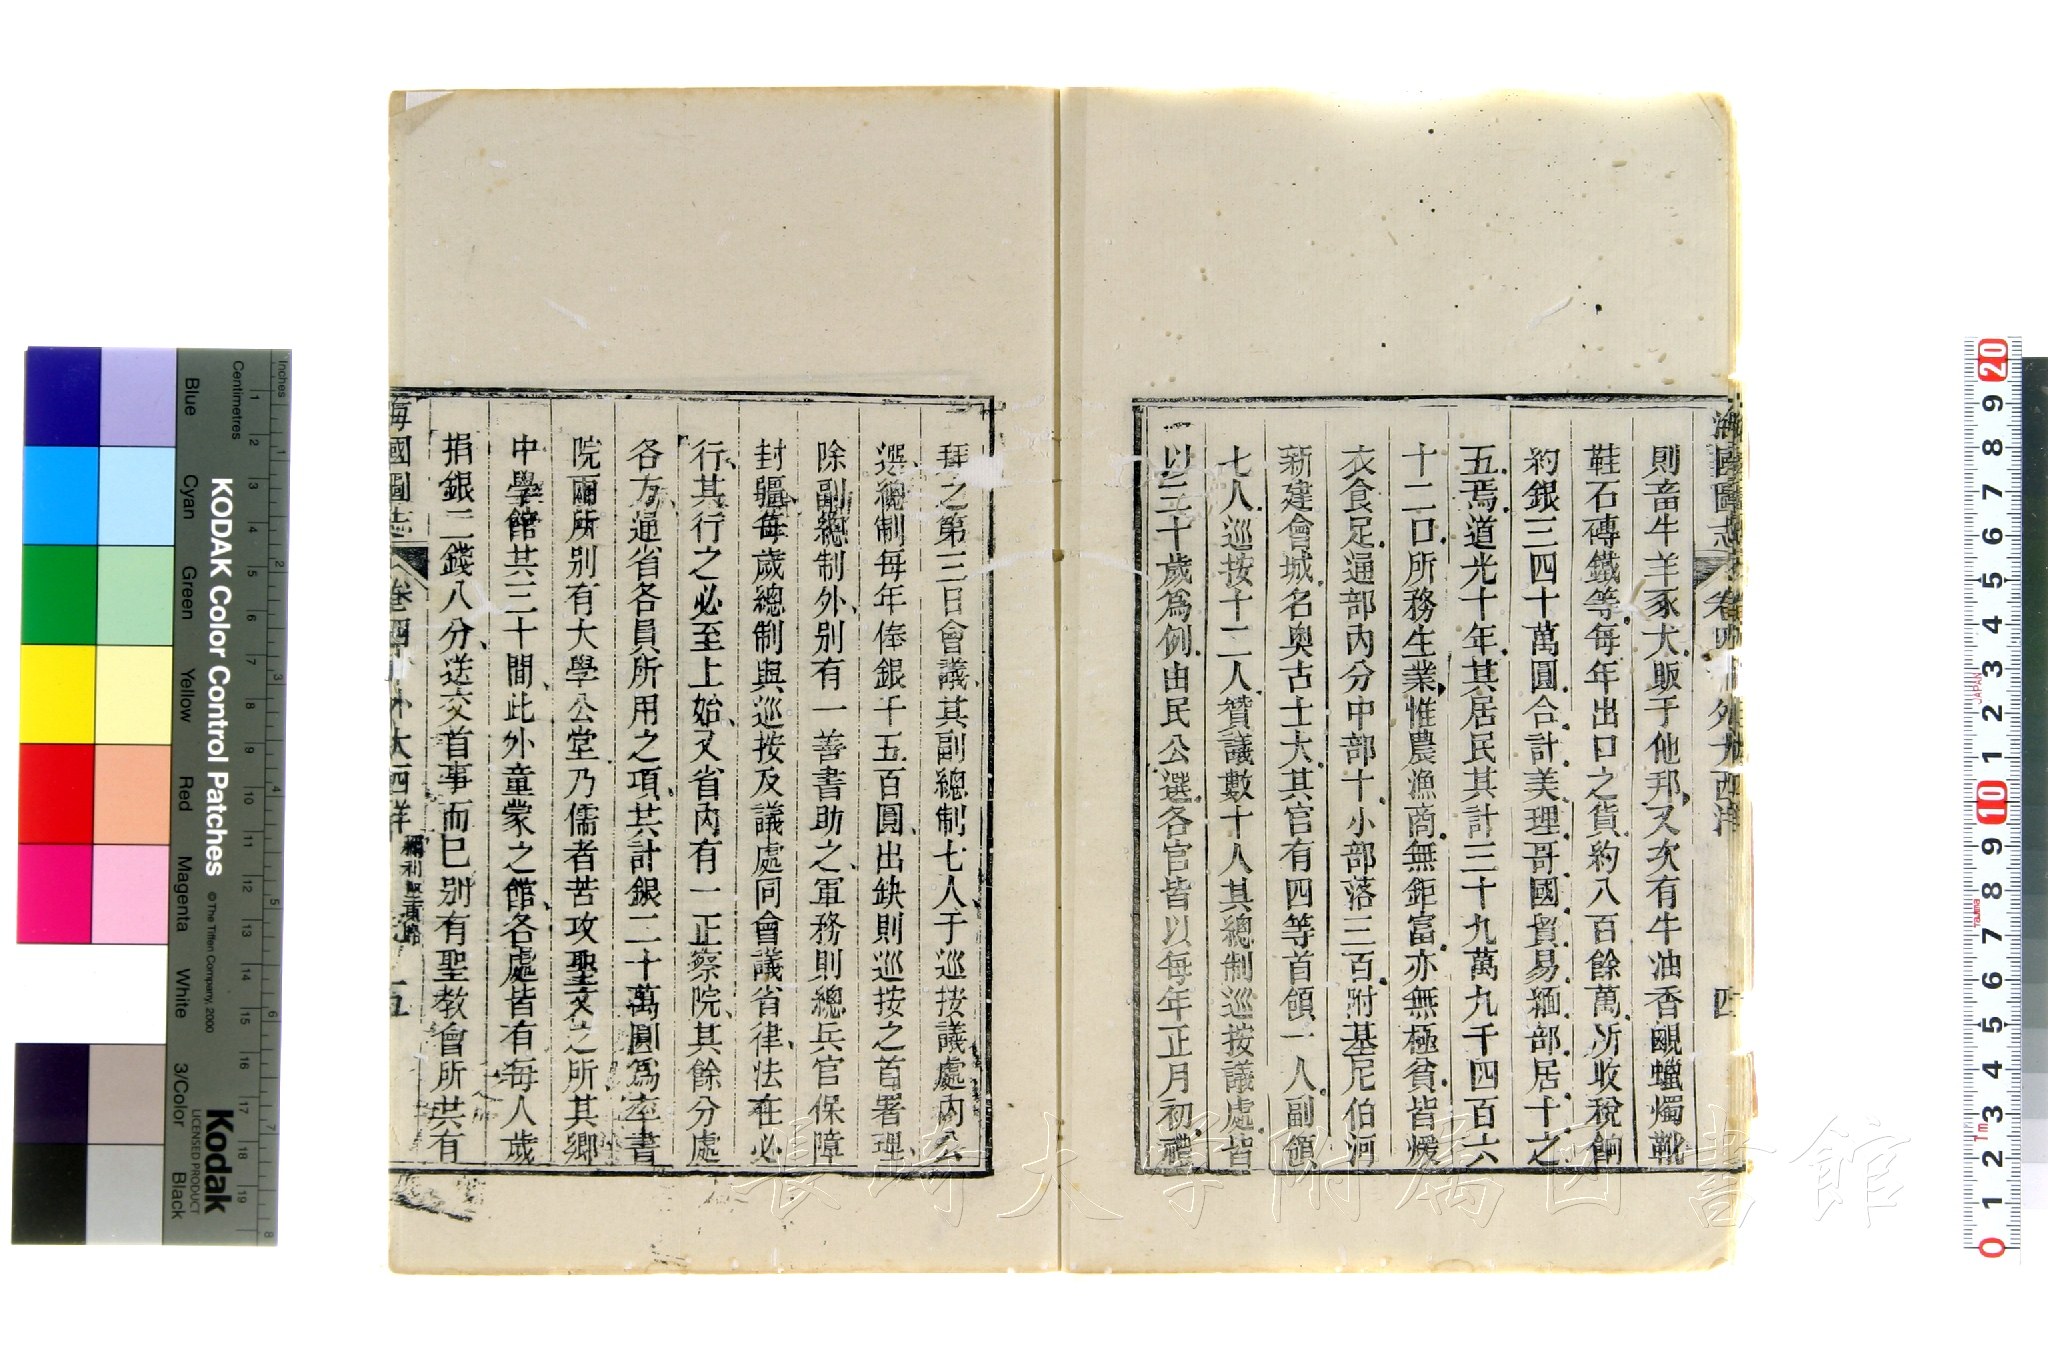 海國圖志 卷四十 外大西洋 四
則畜牛羊豕犬販于他邦又次有牛油香䶉蠟燭靴
鞋石磚鐵等每年出口之貨約八百餘萬所收稅餉
約銀三四十萬圓合計美理哥國貿易緬部居十之
五焉道光十年其居民其計三十九萬九千四百六
十二口所務生業惟農漁商無鉅富亦無極貧皆煖
衣食足通部內分中部十小部落三百附基尼伯河
新建會城名奧古士大其官有四等首領一人副領
七人巡按十二人贊議數十人其總制巡按議處皆
以三十歲爲例由民公選各官皆以每年正月初禮
拜之第三日會議其副總制七人于巡按議處內公
選總制每年俸銀千五百圓出缺則巡按之首署理
除副總制外別有一善書助之軍務則總兵官保障
封疆每歲總制與巡按及議處同會議省律法在必
行其行之必至上始又省內有一正察院其餘分處
各方通省各員所用之項共計銀二十萬圓爲率書
院兩所別有大學公堂乃儒者苦攻聖文之所其鄉
中學館共三十間此外童蒙之館各處皆有每人歲
捐銀二錢八分送交首事而已別有聖教會所共有
海國圖志 卷四十 外大西洋 五
KODAK Color Control Patches
© The Tiffen Company, 2000
Kodak
LICENSED PRODUCT
Inches
Centimetres
Blue
Cyan
Green
Yellow
Red
Magenta
White
3/Color
Black
長崎大学附属図書館
JAPAN